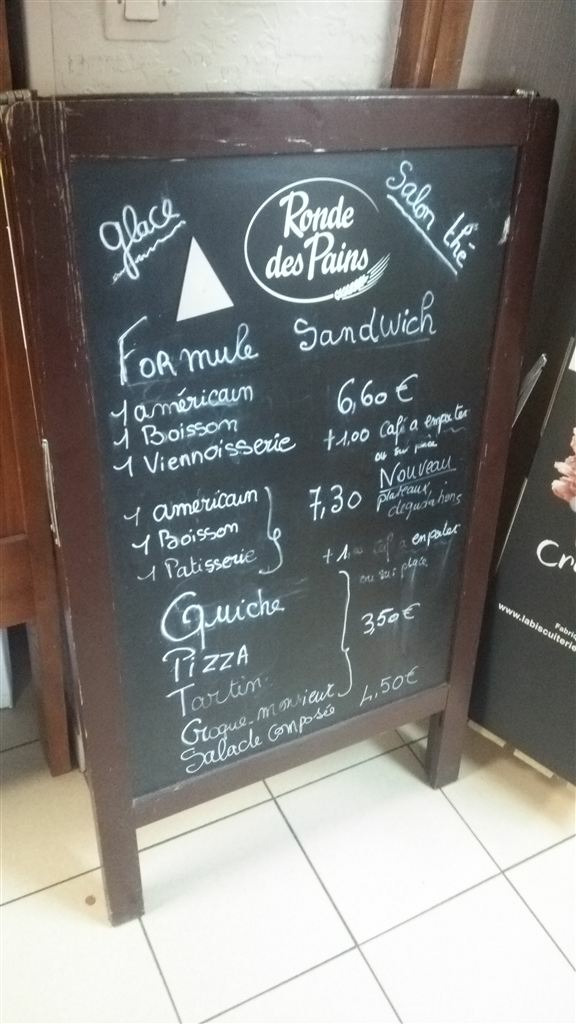 glace
Ronde
des Pains
Salon thé
Formule Sandwich
1 américain 6,60 €
1 Boisson +1,00 café a emporter
1 Viennoisserie ou sur place
Nouveau
plateaux
degustations
1 americain 7,30
1 Boisson
1 Patisserie
ou sur place
Quiche
PIZZA 3,50 €
Tartin
Croque-monsieur
Salade composée 4,50 €
Cr
Fabriq
www.labiscuiterie